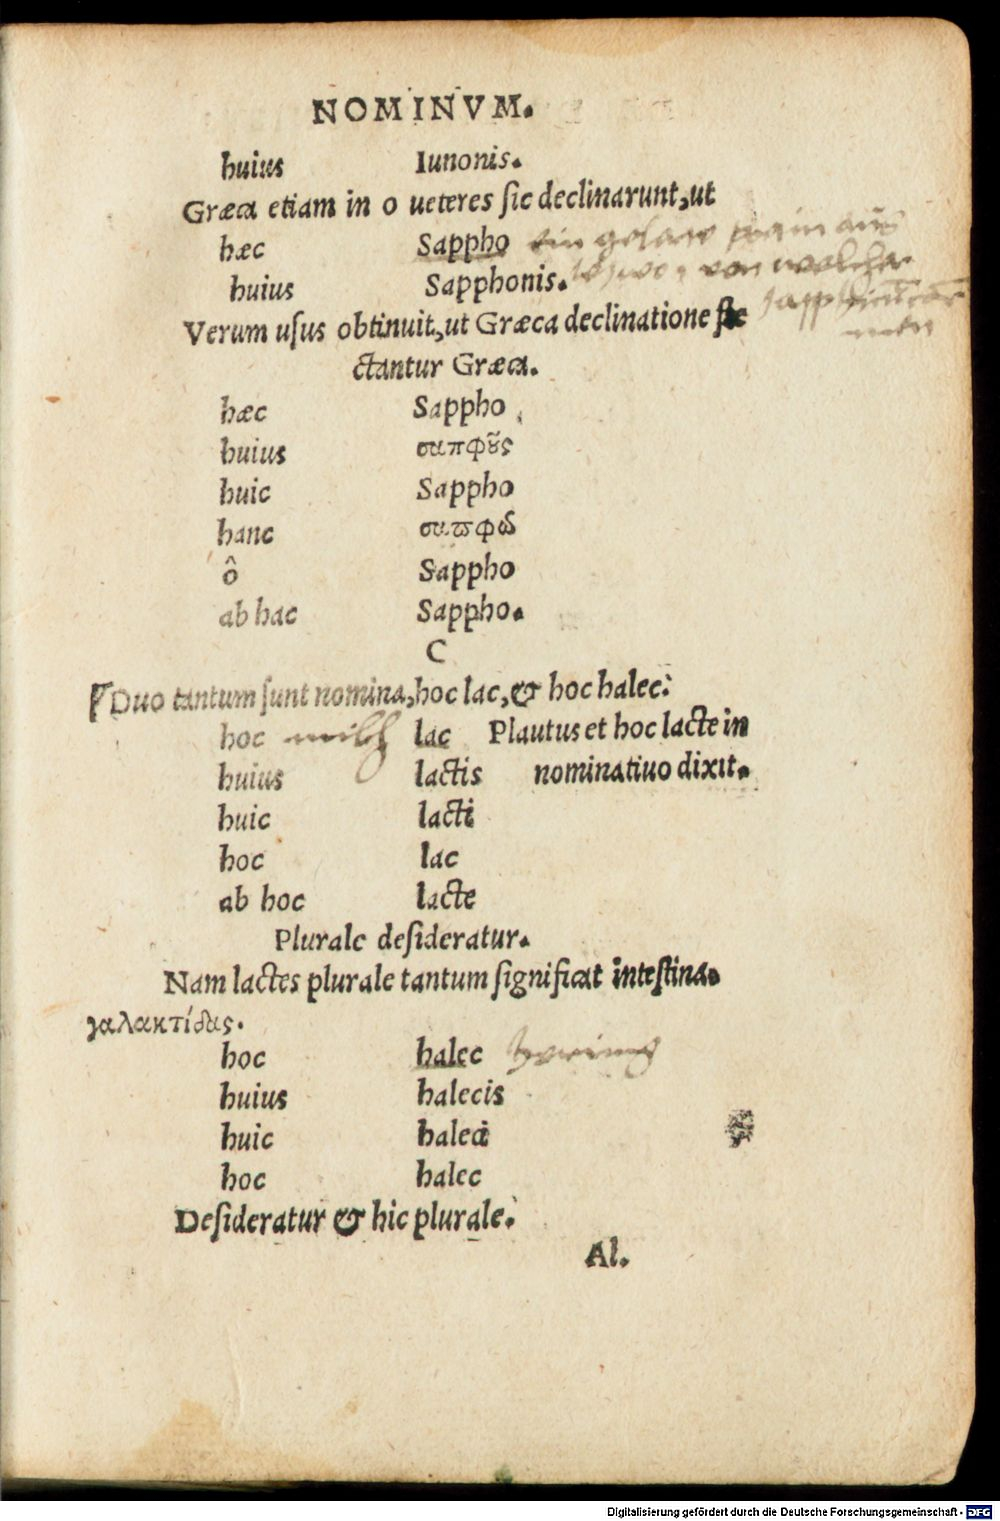 NOMINVM.
huius Iunonis.
Græca etiam in o ueteres ſic declinarunt,ut
hæc Sappho ein gelart
huius Sapphonis. von welcher
Verum uſus obtinuit,ut Græca declinatione fle
ctantur Græca.
hæc Sappho
huius σαπφοῦς
huic Sappho
hanc σαπφὼ
ô Sappho
ab hac Sappho.
C
Duo tantum ſunt nomina,hoc lac,& hoc halec:
hoc milch lac Plautus et hoc lacte in
huius lactis nominatiuo dixit.
huic lacti
hoc lac
ab hoc lacte
Plurale deſideratur.
Nam lactes plurale tantum ſignificat inteſtina.
γαλακτίδας.
hoc halec hering
huius halecis
huic haleci
hoc halec
Deſideratur & hic plurale.
Al.
Digitalisierung gefördert durch die Deutsche Forschungsgemeinschaft - DFG